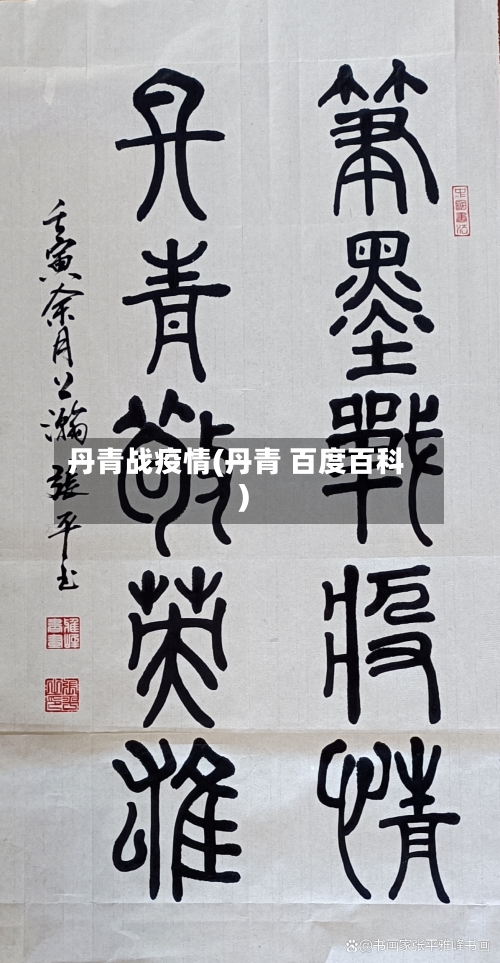 筆墨戰疫情
丹青敬英雄
壬寅余月公瀚張平书
中國書法
丹青战疫情(丹青 百度百科
)
@书画家张平雅峰书画